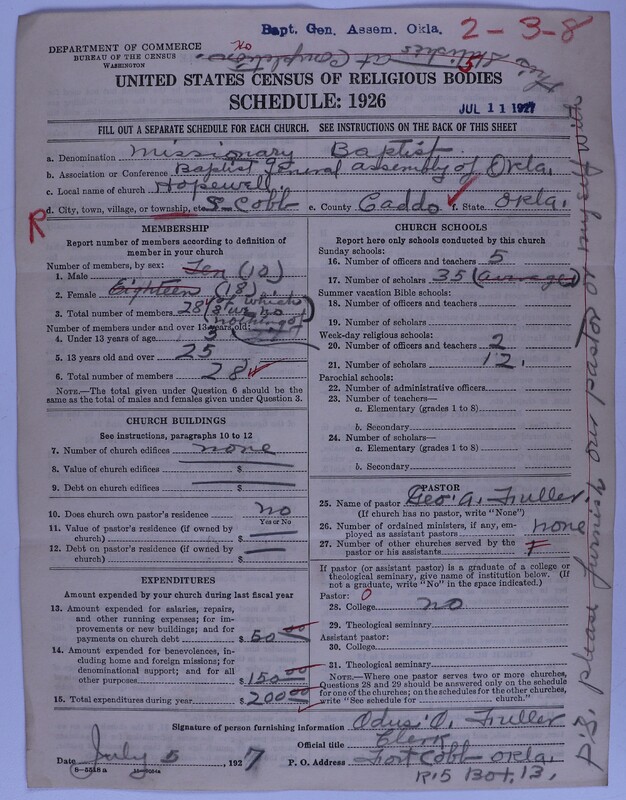 Bapt. Gen. Assem. Okla.
2-3-8
DEPARTMENT OF COMMERCE
BUREAU OF THE CENSUS
WASHINGTON
no
This
Statistics at Completion.
UNITED STATES CENSUS OF RELIGIOUS BODIES
SCHEDULE: 1926
JUL 11 1927
FILL OUT A SEPARATE SCHEDULE FOR EACH CHURCH. SEE INSTRUCTIONS ON THE BACK OF THIS SHEET
a. Denomination Missionary Baptist
b. Association or Conference Baptist General assembly of Okla.
c. Local name of church Hopewell
R d. City, town, village, or township, etc. S- Cobb e. County Caddo f. State Okla.
MEMBERSHIP
Report number of members according to definition of
member in your church
Number of members, by sex:
1. Male Ten (10)
2. Female Eighteen (18)
3. Total number of members 28 of which
3 no
Number of members under and over 13 years old:
4. Under 13 years of age 3
5. 13 years old and over 25
6. Total number of members 28
NOTE.—The total given under Question 6 should be
the same as the total of males and females given under Question 3.
CHURCH BUILDINGS
See instructions, paragraphs 10 to 12
7. Number of church edifices none
8. Value of church edifices $
9. Debt on church edifices $
10. Does church own pastor's residence? no
Yes or No
11. Value of pastor's residence (if owned by
church) $
12. Debt on pastor's residence (if owned by
church) $
EXPENDITURES
Amount expended by your church during last fiscal year
13. Amount expended for salaries, repairs,
and other running expenses; for im-
provements or new buildings; and for
payments on church debt $ 50 00
14. Amount expended for benevolences, in-
cluding home and foreign missions; for
denominational support; and for all
other purposes $ 150 00
15. Total expenditures during year $ 200 00
CHURCH SCHOOLS
Report here only schools conducted by this church
Sunday schools:
16. Number of officers and teachers 5
17. Number of scholars 35 (average)
Summer vacation Bible schools:
18. Number of officers and teachers
19. Number of scholars
Week-day religious schools:
20. Number of officers and teachers 2
21. Number of scholars 12.
Parochial schools:
22. Number of administrative officers
23. Number of teachers—
a. Elementary (grades 1 to 8)
b. Secondary
24. Number of scholars—
a. Elementary (grades 1 to 8)
b. Secondary
PASTOR
25. Name of pastor Geo. A. Fuller
(If church has no pastor, write "None")
26. Number of ordained ministers, if any, em-
ployed as assistant pastors none
27. Number of other churches served by the
pastor or his assistants
If pastor (or assistant pastor) is a graduate of a college or
theological seminary, give name of institution below. (If
not a graduate, write "No" in the space indicated.)
Pastor: 0
28. College no
29. Theological seminary
Assistant pastor:
30. College
31. Theological seminary
NOTE.—Where one pastor serves two or more churches,
Questions 28 and 29 should be answered only on the schedule
for one of the churches; on the schedules for the other churches,
write "See schedule for church."
Signature of person furnishing information Odus. O. Fuller
Official title Clerk
Date July 5, 1927 P. O. Address Fort Cobb Okla.
R.5 Box. 13.
8-5518 a
P.S. please furnish our pastor or myself with